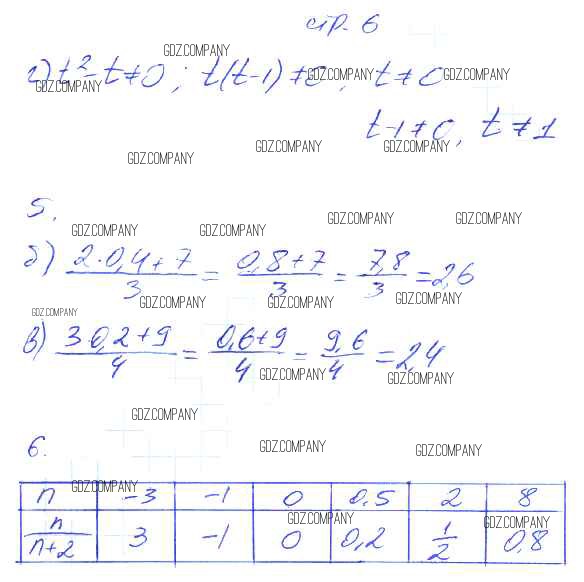 стр. 6
GDZ.COMPANY
г) t² - t ≠ 0 ; t(t-1) ≠ 0, t ≠ 0
GDZ.COMPANY GDZ.COMPANY GDZ.COMPANY
t-1 ≠ 0, t ≠ 1
GDZ.COMPANY GDZ.COMPANY GDZ.COMPANY
5.
GDZ.COMPANY GDZ.COMPANY GDZ.COMPANY GDZ.COMPANY
б) (2·0,4+7)/3 = (0,8+7)/3 = 7,8/3 = 2,6
GDZ.COMPANY GDZ.COMPANY GDZ.COMPANY GDZ.COMPANY
в) (3·0,2+9)/4 = (0,6+9)/4 = 9,6/4 = 2,4
GDZ.COMPANY GDZ.COMPANY
GDZ.COMPANY
6.
GDZ.COMPANY GDZ.COMPANY
GDZ.COMPANY
n -3 -1 0 0,5 2 8
GDZ.COMPANY GDZ.COMPANY
n/(n+2) 3 -1 0 0,2 1/2 0,8